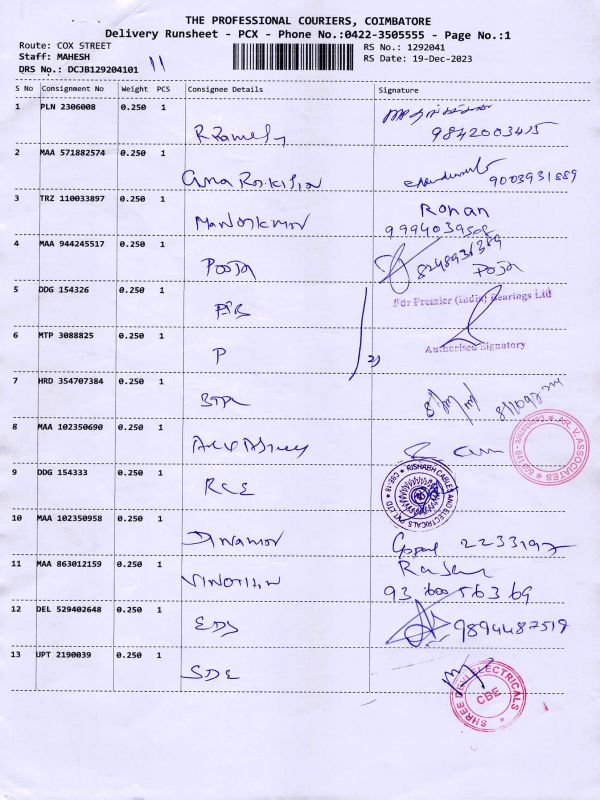 THE PROFESSIONAL COURIERS, COIMBATORE
Delivery Runsheet - PCX - Phone No.:0422-3505555 - Page No.:1
Route: COX STREET RS No.: 1292041
Staff: MAHESH RS Date: 19-Dec-2023
DRS No.: DCJB129204101 11
S No Consignment No Weight PCS Consignee Details Signature
1 PLN 2306008 0.250 1
R Ramesh 9842003415
2 MAA 571882574 0.250 1
9003931889
3 TRZ 110033897 0.250 1 Rohan
Manojkumar
4 MAA 944245517 0.250 1
Pooja Pooja
5 DDG 154326 0.250 1 For Premier (India) Bearings Ltd
PIB
6 MTP 3088825 0.250 1
P 2) Authorised Signatory
7 HRD 354707384 0.250 1
8 MAA 102350690 0.250 1
A.R.V.ASSOCIATES
9 DDG 154333 0.250 1 RISHABH CABLES AND ELECTRICALS PVT LTD CBE-18
RCE
10 MAA 102350958 0.250 1
2233197
11 MAA 863012159 0.250 1
12 DEL 529402648 0.250 1
EDS 9894487519
13 UPT 2190039 0.250 1
SDE SHREE DEVI ELECTRICALS CBE